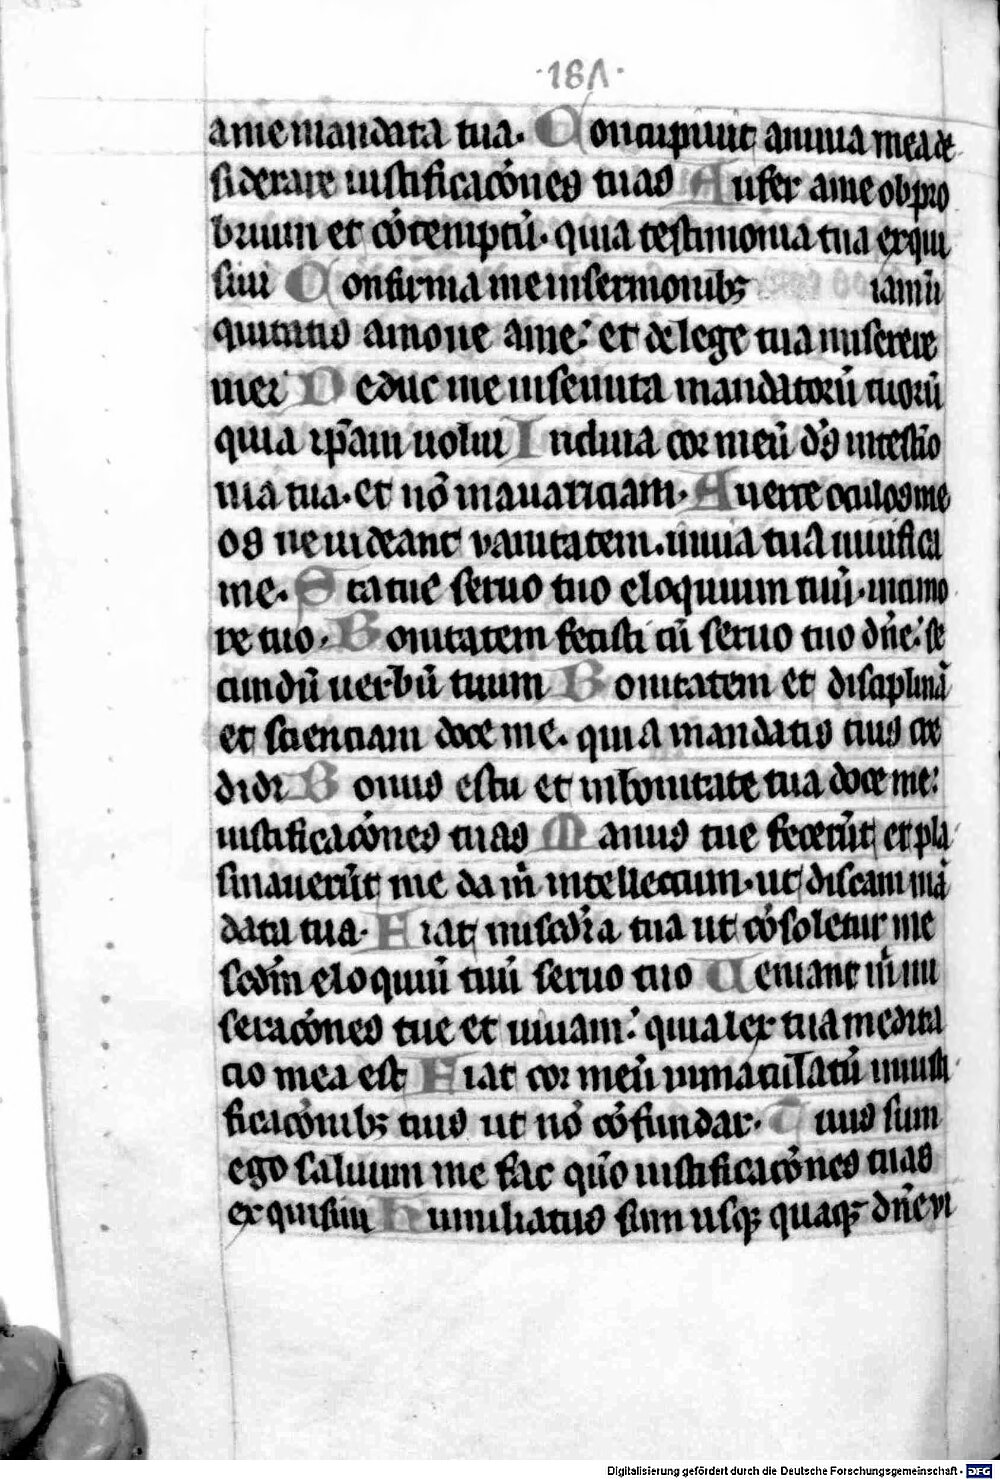 ·181·
a me mandata tua. Concupiuit anima mea de
siderare iustificacōnes tuas Aufer a me obpro
brium et cōtemptū. quia testimonia tua exqui
siui Confirma me in sermonibꝫ iam iī
quitatis amoue a me: et de lege tua miserere
mei Deduc me in semita mandatorū tuorū
quia ip̄am uolui Inclina cor meū d̄s in testīo
nia tua. et nō in auariciam. Auerte oculos me
os ne uideant vanitatem. in uia tua uiuifica
me. Statue seruo tuo eloquium tuū. in timo
re tuo. Bonitatem fecisti cū seruo tuo dn̄e: se
cundū uerbū tuum Bonitatem et disciplinā
et scienciam doce me. quia mandatis tuis cre
didi Bonus es tu et in bonitate tua doce me:
iustificacōnes tuas Manus tue fecerūt et pla
smauerūt me da m̄ intellectum. ut discam mā
data tua. Fiat misc̄dia tua ut cōsoletur me
scdm̄ eloquiū tuū seruo tuo Ueniant m̄ mi
seracōnes tue et uiuam: quia lex tua medita
cio mea est Fiat cor meū inmaculatū in iusti
ficacōnibꝫ tuis ut nō cōfundar. Tuus sum
ego saluum me fac qūo iustificacōnes tuas
exquisiui Humiliatus sum usqꝫ quaqꝫ dn̄e vi
Digitalisierung gefördert durch die Deutsche Forschungsgemeinschaft - DFG